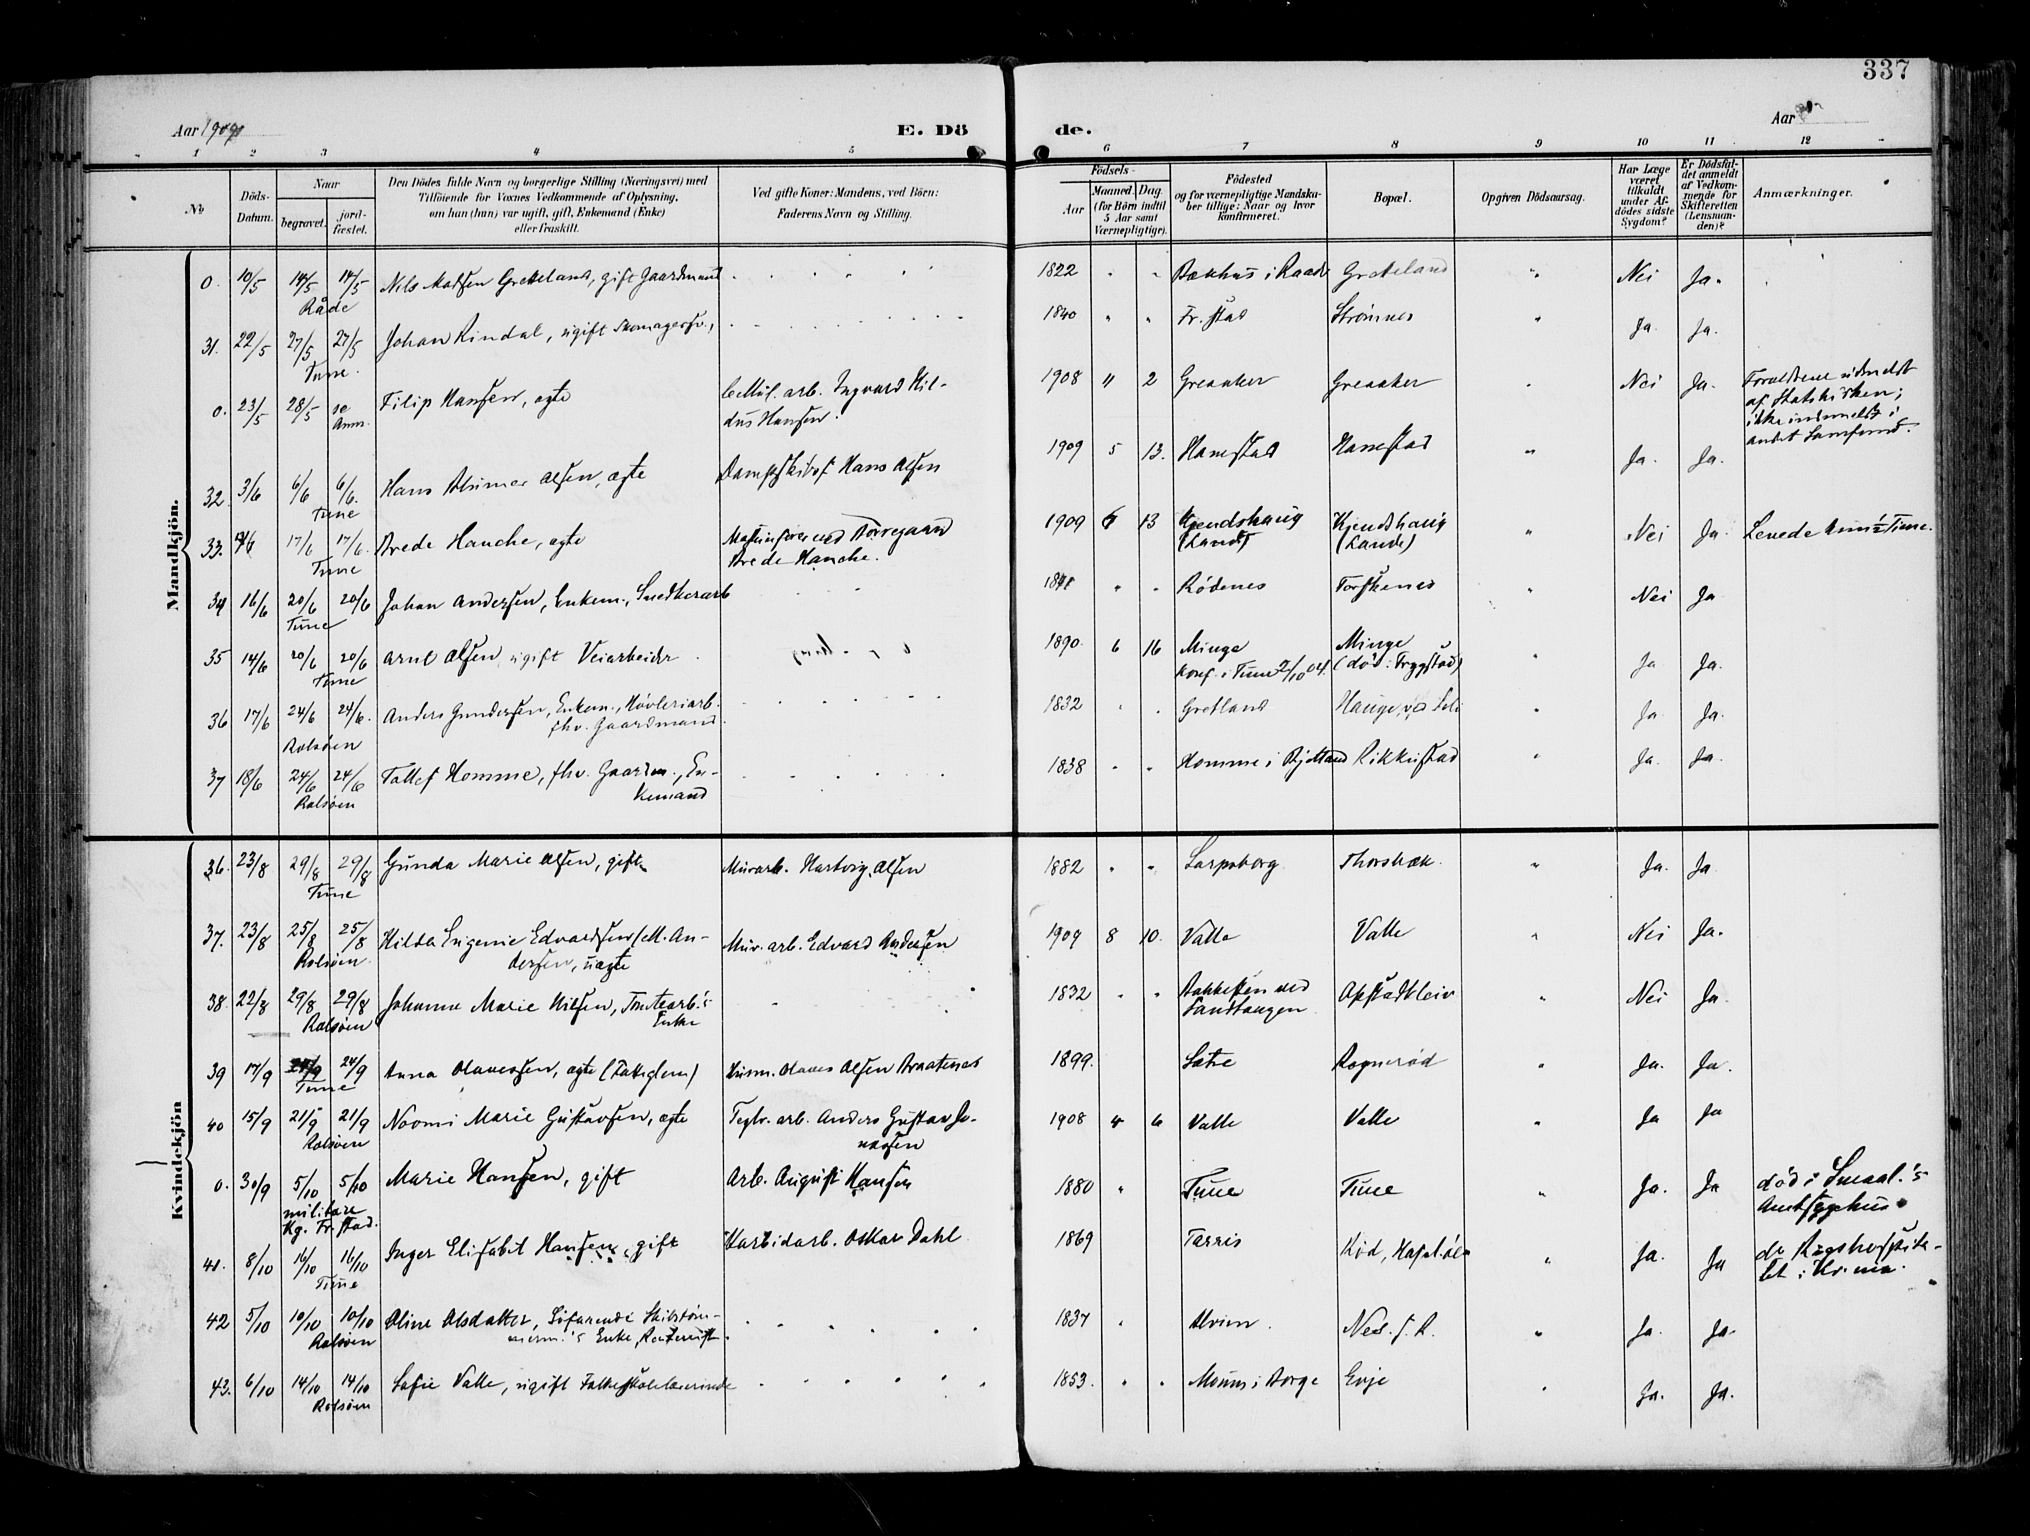 337
Aar 1909
E. Dö
de.
Aar
1 2 3 4 5 6 7 8 9 10 11 12
No
Döds-Datum.
Naar
begravet.
jord-fæstet.
Den Dödes fulde Navn og borgerlige Stilling (Næringsvei) med
Tilföiende for Voxnes Vedkommende af Oplysning,
om han (hun) var ugift, gift, Enkemand (Enke)
eller fraskilt.
Ved gifte Koner: Mandens, ved Börn:
Faderens Navn og Stilling.
Födsels-
Aar
Maaned. Dag.
(for Börn indtil
5 Aar samt
Værnepligtige).
Födested
og for værnepligtige Mandska-
ber tillige: Naar og hvor
konfirmeret.
Bopæl.
Opgiven Dödsaarsag.
Har Læge
været
tilkaldt
under Af-
dödes sidste
Sygdom?
Er Dödsfal-
det anmeldt
af Vedkom-
mende for
Skifteretten
(Lensman-
den)?
Anmærkninger.
Mandkjön.
0. 10/5 14/5 14/5 Nils Madsen Greteland, gift Gaardmand 1822 " " Bækhus i Raade Greteland " Nei Ja.
Råde
31. 22/5 27/5 27/5 Johan Rindal, ugift Skomagersv., 1840 " " Fr.stad Strömnes " Ja. Ja.
Tune.
0. 23/5 28/5 se Filip Hansen, ægte Cellul. arb. Ingvard Hil- 1908 11 2 Greaaker Greaaker " Nei Ja. Forældrene udmeldt
Anm. dus Hansen. af Statskirken;
ikke indmeldt i
andet Samfund.
32. 3/6 6/6 6/6. Hans Olsen, ægte Hans Olsen 1909 5 13. Hanestad Hanestad " Ja. Ja.
Tune
33. 17/6 17/6. Brede Hanche, ægte Borregaard 1909 13 Kjendshaug Kjendshaug " Nei Ja. Levede i Time.
Tune Brede Hanche. (Lande) (Lande)
34 16/6 20/6 20/6 Johan Andersen, Enkem., Snedkerarb " " Rödenes Torskenes " Nei Ja
Tune
35 14/6 20/6 20/6 Arnt Olsen, ugift Veiarbeider 1890. 6 16 Minge Minge " Ja Ja.
Tune konf. i Tune 2/10 04. (död i Trygstad)
36 17/6 24/6 24/6. Anders Gundersen, Enkem., Hövleriarb. 1832 " " Gretland Hauge, ved Soli " Ja. Ja.
Rolsöen fhv. Gaardmand.
37 18/6 24/6 24/6 Tallef Homme, fhv. Gaardm., En- 1838 " " Homme i Bjelland Rikkistad " Ja. Ja.
Rolsöen kemand
Kvindekjön
36. 23/8 29/8 29/8 Gunda Marie Olsen, gift Murarb. Hartvig Olsen 1882 " " Sarpsborg Thorsbæk. " Ja. Ja
Tune
37. 23/8 25/8 25/8 Hilda Eugenie Edvardsen (M. An- Mur. arb. Edvard Andersen 1909 8 10. Valle Valle " Nei Ja.
Rolsöen. dersen, uægte
38. 22/8 29/8 29/8 Johanne Marie Nilsen, Tomtearb.'s 1832 " " Bakkesten ved Opstadkleiv " Nei Ja.
Rolsöen Enke Sandtangen
39 17/9 24/9 24/9 Anna Olavesen, ægte (Tatteglem) Husm. Olaves Olsen Braatenes 1899. Sætre Rognerød " Ja. Ja.
Tune
40 15/9 21/9 21/9 Noomi Marie Gustavsen, ægte Teglv. arb. Anders Gustav Jo- 1908 4 6 Valle Valle " Ja Ja
Rolsöen nassen
0. 30/9 5/10 5/10 Marie Hansen, gift Arb. August Hansen 1880 " Tune Tune " Ja. Ja död i Smaal.'s
militære Amtssygehus
Kg. Fr.stad.
41. 8/10 16/10 16/10 Inger Elisabet Hansen, gift Karbidarb. Oskar Dahl. 1869 Tarris Röd, Hafslöi " Ja. Ja do Rigshospita-
Tune let i Kr.nia.
42 5/10 10/10 10/10 Oline Olsdatter, Söfarende Skibstöm- 1837 " Alvim. Nes. f. R. " Ja. Ja.
Rolsöen merm.'s Enke,
43. 6/10 14/10 14/10 Sofie Valle, ugift Folkeskolelærerinde 1853. " " Moum i Borge Evje " Ja. Ja.
Rolsöen